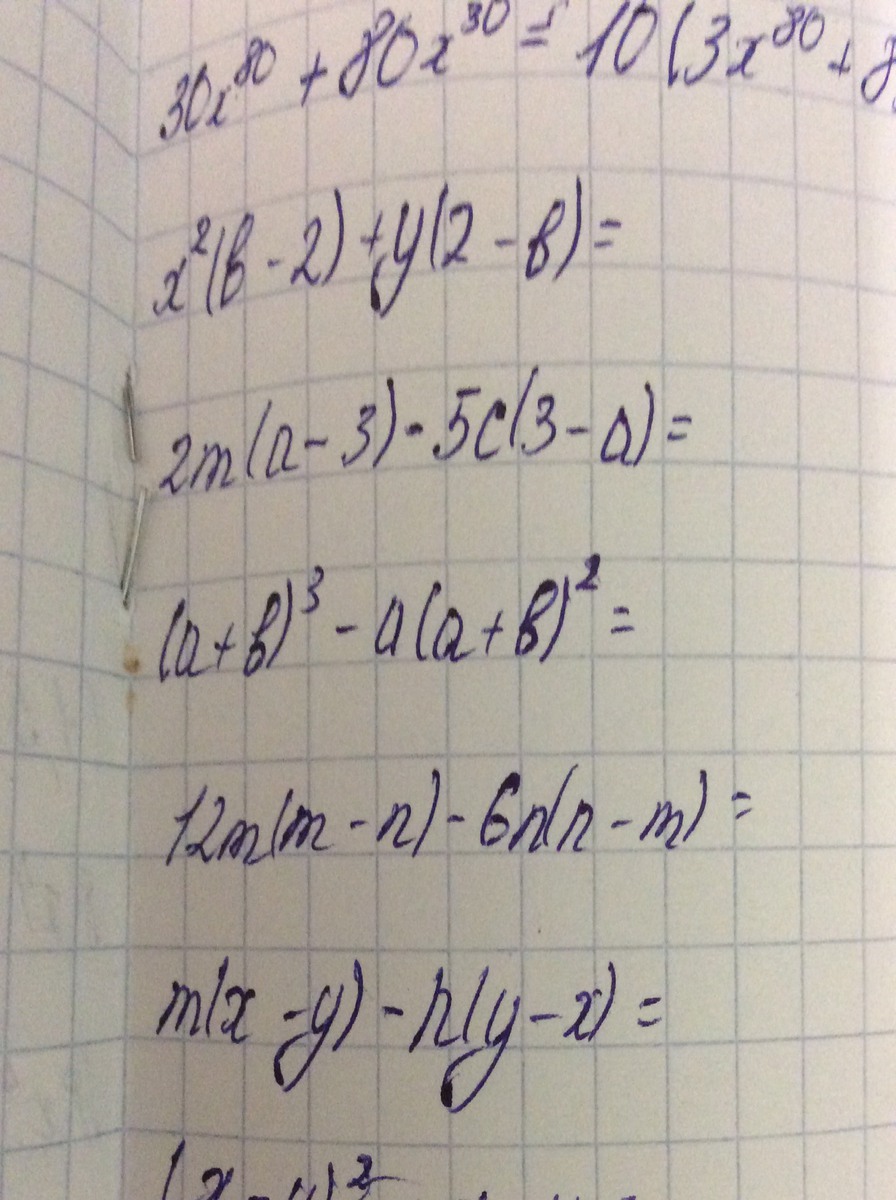 30x⁸⁰ + 80x³⁰ = 10(3x⁸⁰ + 8
x²(в - 2) + y(2 - в) =
2m(a - 3) - 5c(3 - a) =
(a + в)³ - a(a + в)² =
12m(m - n) - 6n(n - m) =
m(x - y) - n(y - x) =
(x - y)²